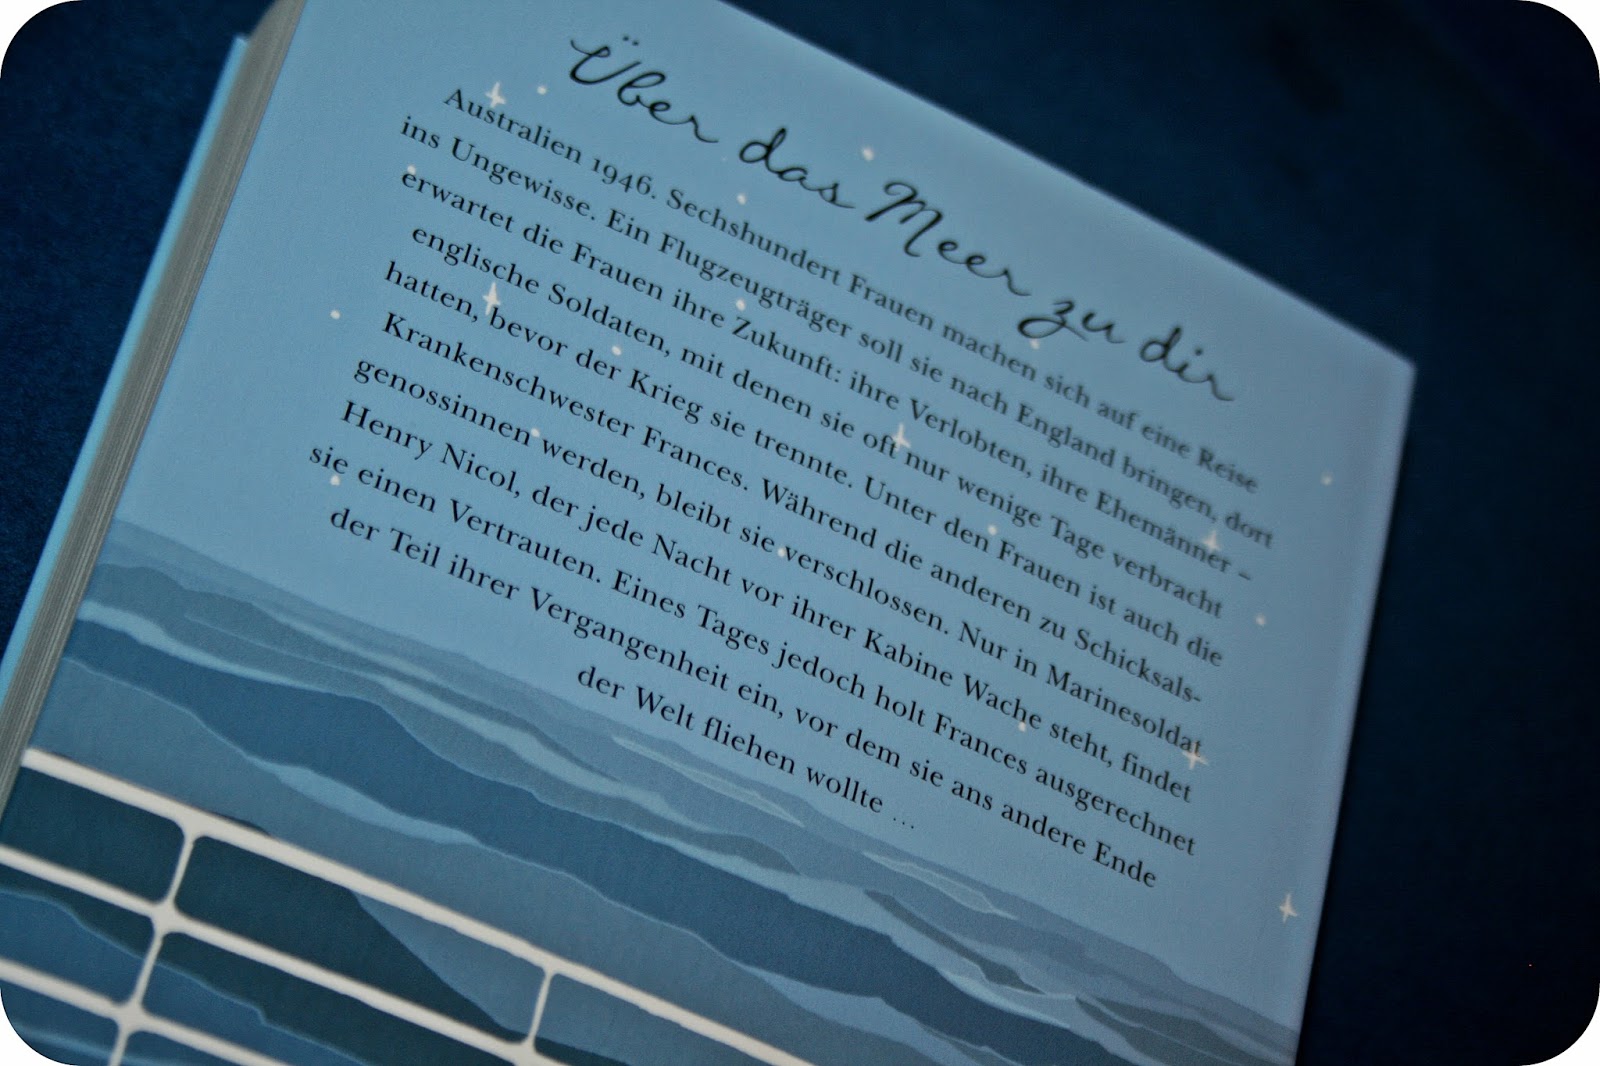 Über das Meer zu dir
Australien 1946. Sechshundert Frauen machen sich auf eine Reise
ins Ungewisse. Ein Flugzeugträger soll sie nach England bringen, dort
erwartet die Frauen ihre Zukunft: ihre Verlobten, ihre Ehemänner –
englische Soldaten, mit denen sie oft nur wenige Tage verbracht
hatten, bevor der Krieg sie trennte. Unter den Frauen ist auch die
Krankenschwester Frances. Während die anderen zu Schicksals-
genossinnen werden, bleibt sie verschlossen. Nur in Marinesoldat
Henry Nicol, der jede Nacht vor ihrer Kabine Wache steht, findet
sie einen Vertrauten. Eines Tages jedoch holt Frances ausgerechnet
der Teil ihrer Vergangenheit ein, vor dem sie ans andere Ende
der Welt fliehen wollte ...